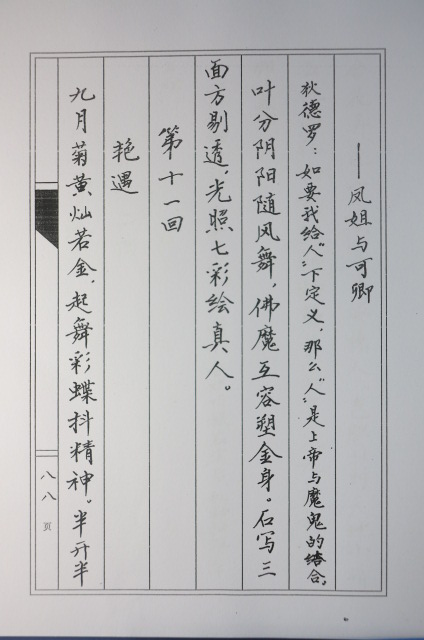 ——凤姐与可卿
狄德罗：如要我给“人”下定义，那么“人”是上帝与魔鬼的结合。
叶分阴阳随风舞，佛魔互容塑金身。石写三
面方剔透，光照七彩绘真人。
第十一回
艳遇
九月菊黄灿若金，起舞彩蝶抖精神。半开半
八八页